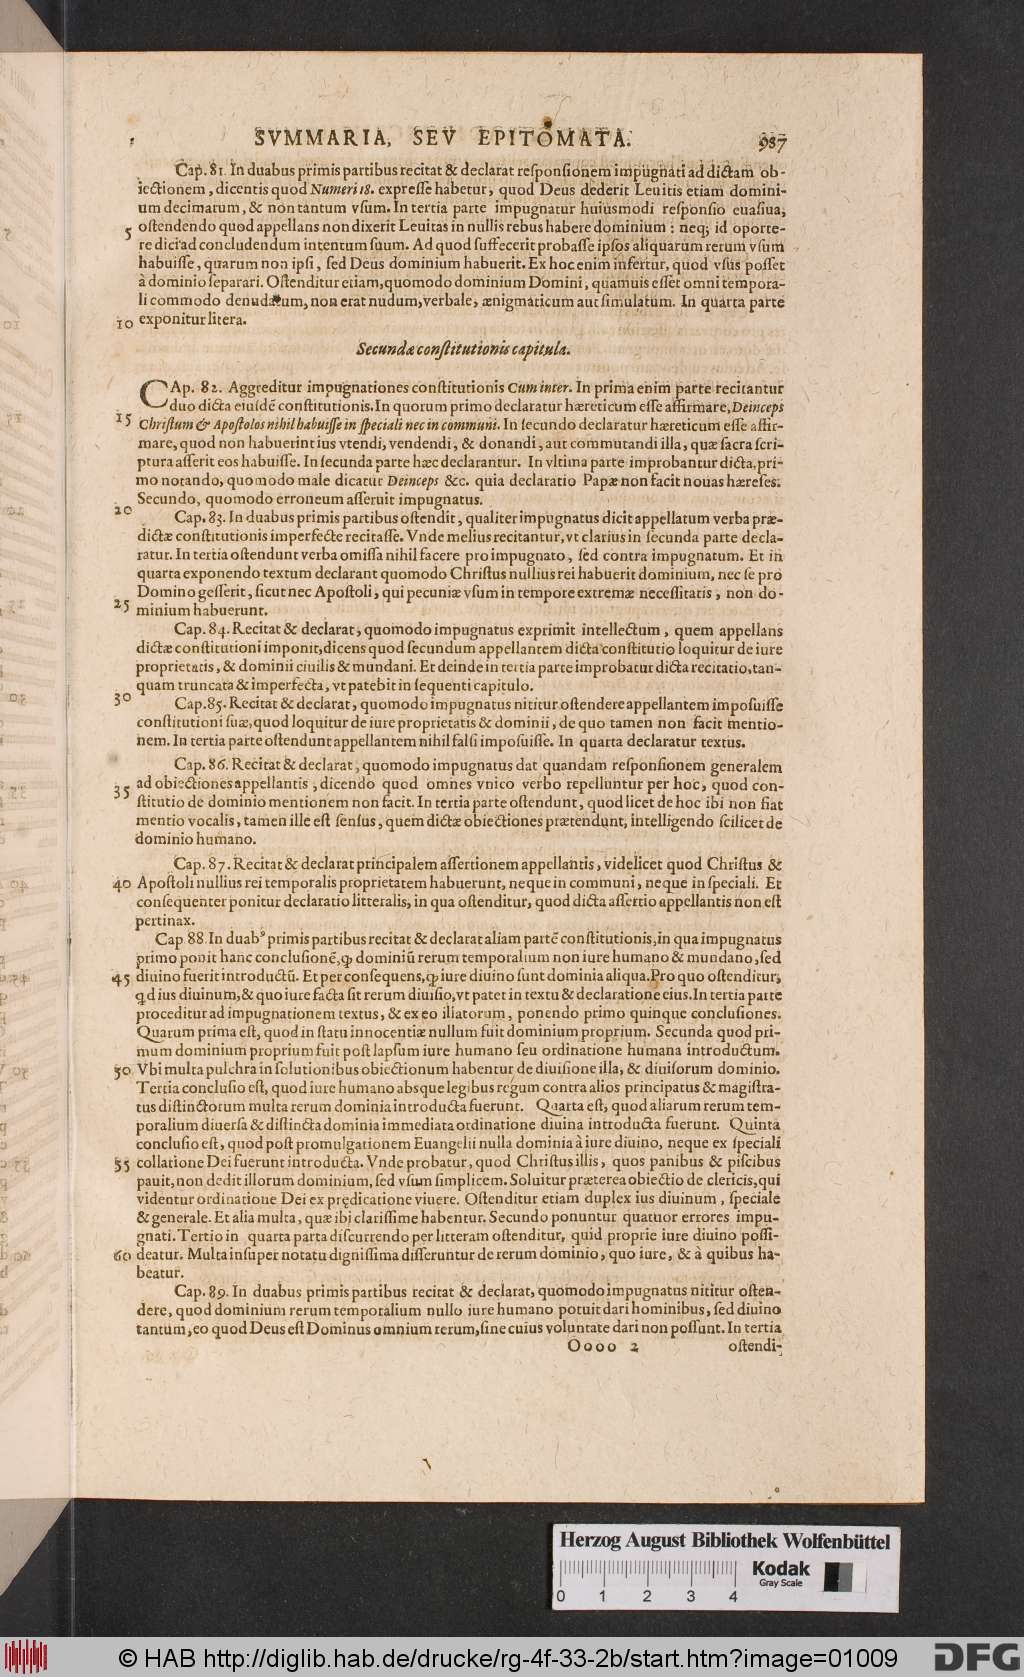 SVMMARIA, SEV EPITOMATA. 987
Cap. 81. In duabus primis partibus recitat & declarat responsionem impugnati ad dictam ob-
iectionem, dicentis quod Numeri 18. expresse habetur, quod Deus dederit Leuitis etiam domini-
um decimarum, & non tantum vsum. In tertia parte impugnatur huiusmodi responsio euasiua,
5 ostendendo quod appellans non dixerit Leuitas in nullis rebus habere dominium: neq; id oporte-
re dici ad concludendum intentum suum. Ad quod suffecerit probasse ipsos aliquarum rerum vsum
habuisse, quarum non ipsi, sed Deus dominium habuerit. Ex hoc enim infertur, quod vsus posset
à dominio separari. Ostenditur etiam, quomodo dominium Domini, quamuis esset omni tempora-
li commodo denudatum, non erat nudum, verbale, ænigmaticum aut simulatum. In quarta parte
10 exponitur litera.
Secundæ constitutionis capitula.
CAp. 82. Aggreditur impugnationes constitutionis Cum inter. In prima enim parte recitantur
duo dicta eiusdē constitutionis. In quorum primo declaratur hæreticum esse affirmare, Deinceps
15 Christum & Apostolos nihil habuisse in speciali nec in communi. In secundo declaratur hæreticum esse affir-
mare, quod non habuerint ius vtendi, vendendi, & donandi, aut commutandi illa, quæ sacra scri-
ptura asserit eos habuisse. In secunda parte hæc declarantur. In vltima parte improbantur dicta, pri-
mo notando, quomodo male dicatur Deinceps &c. quia declaratio Papæ non facit nouas hæreses.
Secundo, quomodo erroneum asseruit impugnatus.
20 Cap. 83. In duabus primis partibus ostendit, qualiter impugnatus dicit appellatum verba præ-
dictæ constitutionis imperfecte recitasse. Vnde melius recitantur, vt clarius in secunda parte decla-
ratur. In tertia ostendunt verba omissa nihil facere pro impugnato, sed contra impugnatum. Et in
quarta exponendo textum declarant quomodo Christus nullius rei habuerit dominium, nec se pro
Domino gesserit, sicut nec Apostoli, qui pecuniæ vsum in tempore extremæ necessitatis, non do-
25 minium habuerunt.
Cap. 84. Recitat & declarat, quomodo impugnatus exprimit intellectum, quem appellans
dictæ constitutioni imponit, dicens quod secundum appellantem dicta constitutio loquitur de iure
proprietatis, & dominii ciuilis & mundani. Et deinde in tertia parte improbatur dicta recitatio, tan-
quam truncata & imperfecta, vt patebit in sequenti capitulo.
30 Cap. 85. Recitat & declarat, quomodo impugnatus nititur ostendere appellantem imposuisse
constitutioni suæ, quod loquitur de iure proprietatis & dominii, de quo tamen non facit mentio-
nem. In tertia parte ostendunt appellantem nihil falsi imposuisse. In quarta declaratur textus.
Cap. 86. Recitat & declarat, quomodo impugnatus dat quandam responsionem generalem
35 ad obiectiones appellantis, dicendo quod omnes vnico verbo repelluntur per hoc, quod con-
stitutio de dominio mentionem non facit. In tertia parte ostendunt, quod licet de hoc ibi non fiat
mentio vocalis, tamen ille est sensus, quem dictæ obiectiones prætendunt, intelligendo scilicet de
dominio humano.
Cap. 87. Recitat & declarat principalem assertionem appellantis, videlicet quod Christus &
40 Apostoli nullius rei temporalis proprietatem habuerunt, neque in communi, neque in speciali. Et
consequenter ponitur declaratio litteralis, in qua ostenditur, quod dicta assertio appellantis non est
pertinax.
Cap 88. In duabꝰ primis partibus recitat & declarat aliam partē constitutionis, in qua impugnatus
primo ponit hanc conclusionē, ꝙ dominiū rerum temporalium non iure humano & mundano, sed
45 diuino fuerit introductū. Et per consequens, ꝙ iure diuino sunt dominia aliqua. Pro quo ostenditur,
ꝙd ius diuinum, & quo iure facta sit rerum diuisio, vt patet in textu & declaratione eius. In tertia parte
proceditur ad impugnationem textus, & ex eo illatorum, ponendo primo quinque conclusiones.
Quarum prima est, quod in statu innocentiæ nullum fuit dominium proprium. Secunda quod pri-
mum dominium proprium fuit post lapsum iure humano seu ordinatione humana introductum.
50 Vbi multa pulchra in solutionibus obiectionum habentur de diuisione illa, & diuisorum dominio.
Tertia conclusio est, quod iure humano absque legibus regum contra alios principatus & magistra-
tus distinctorum multa rerum dominia introducta fuerunt. Quarta est, quod aliarum rerum tem-
poralium diuersa & distincta dominia immediata ordinatione diuina introducta fuerunt. Quinta
conclusio est, quod post promulgationem Euangelii nulla dominia à iure diuino, neque ex speciali
55 collatione Dei fuerunt introducta. Vnde probatur, quod Christus illis, quos panibus & piscibus
pauit, non dedit illorum dominium, sed vsum simplicem. Soluitur præterea obiectio de clericis, qui
videntur ordinatione Dei ex prędicatione viuere. Ostenditur etiam duplex ius diuinum, speciale
& generale. Et alia multa, quæ ibi clarissime habentur. Secundo ponuntur quatuor errores impu-
gnati. Tertio in quarta parta discurrendo per litteram ostenditur, quid proprie iure diuino possi-
60 deatur. Multa insuper notatu dignissima disseruntur de rerum dominio, quo iure, & à quibus ha-
beatur.
Cap. 89. In duabus primis partibus recitat & declarat, quomodo impugnatus nititur osten-
dere, quod dominium rerum temporalium nullo iure humano potuit dari hominibus, sed diuino
tantum, eo quod Deus est Dominus omnium rerum, sine cuius voluntate dari non possunt. In tertia
Oooo 2 ostendi-
Herzog August Bibliothek Wolfenbüttel
0 1 2 3 4
Kodak
Gray Scale
© HAB http://diglib.hab.de/drucke/rg-4f-33-2b/start.htm?image=01009
DFG